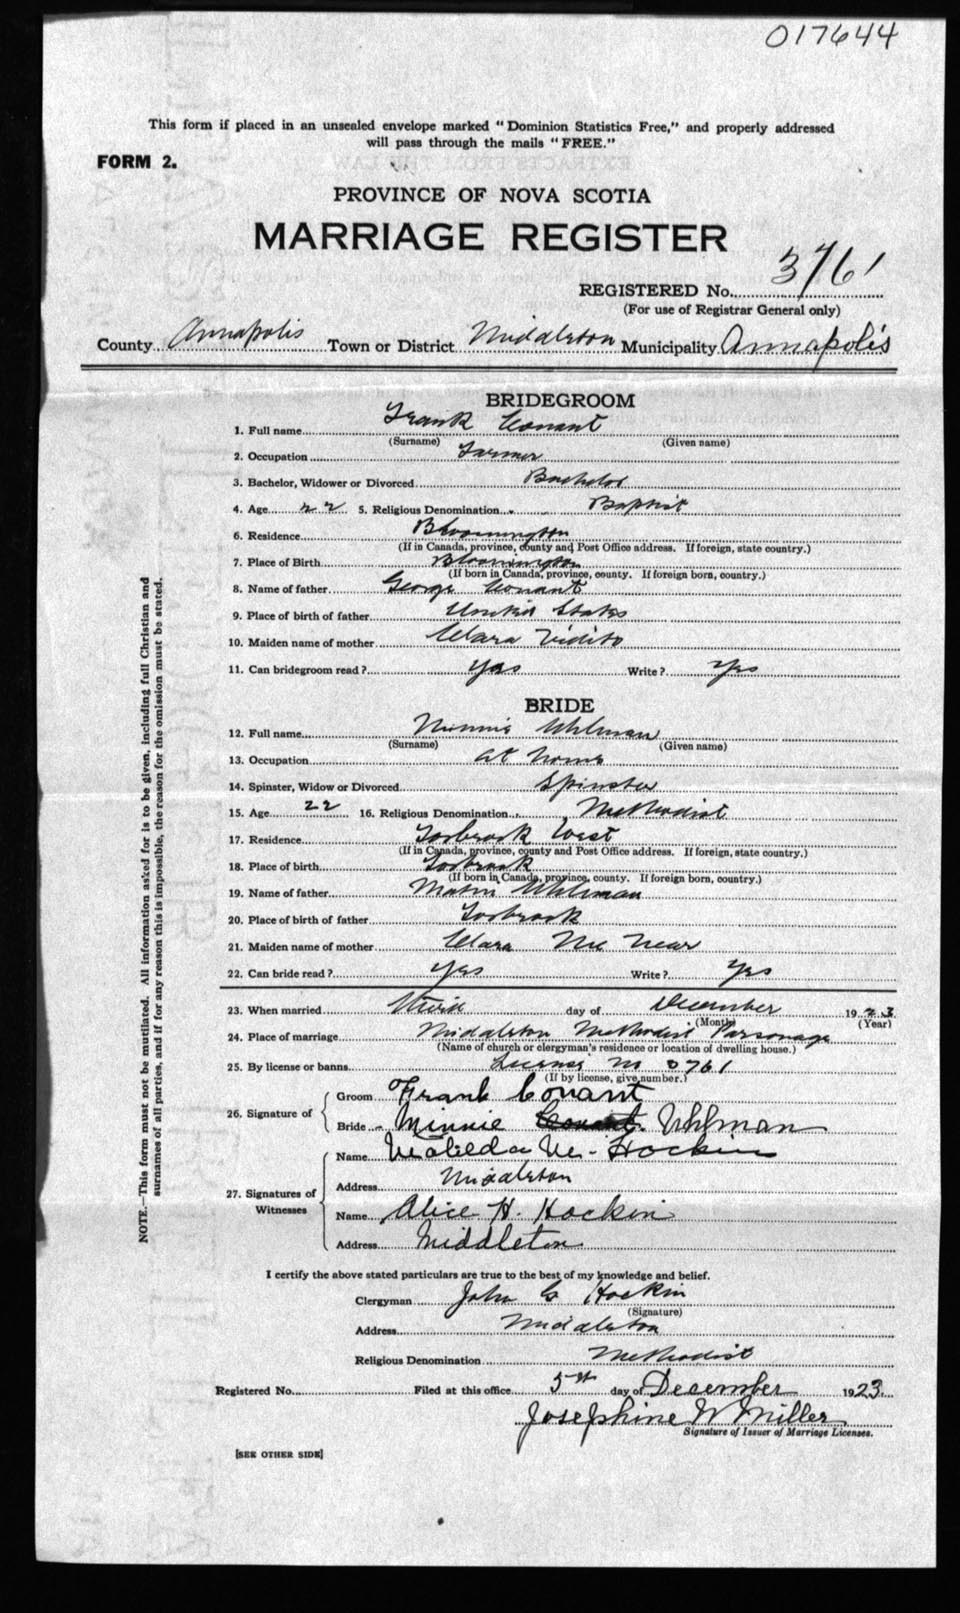 017644
This form if placed in an unsealed envelope marked "Dominion Statistics Free," and properly addressed
will pass through the mails "FREE."
FORM 2.
PROVINCE OF NOVA SCOTIA
MARRIAGE REGISTER
REGISTERED No. 3761
(For use of Registrar General only)
County Annapolis Town or District Middleton Municipality Annapolis
BRIDEGROOM
1. Full name Frank Conant
(Surname) (Given name)
2. Occupation Farmer
3. Bachelor, Widower or Divorced Bachelor
4. Age 22 5. Religious Denomination Baptist
6. Residence Bloomington
(If in Canada, province, county and Post Office address. If foreign, state country.)
7. Place of Birth Bloomington
(If born in Canada, province, county. If foreign born, country.)
8. Name of father George Conant
9. Place of birth of father United States
10. Maiden name of mother Clara Vidito
11. Can bridegroom read? Yes Write? Yes
BRIDE
12. Full name Minnie Uhlman
(Surname) (Given name)
13. Occupation at home
14. Spinster, Widow or Divorced Spinster
15. Age 22 16. Religious Denomination Methodist
17. Residence Torbrook West
(If in Canada, province, county and Post Office address. If foreign, state country.)
18. Place of birth Torbrook
(If born in Canada, province, county. If foreign born, country.)
19. Name of father Uhlman
20. Place of birth of father Torbrook
21. Maiden name of mother Clara
22. Can bride read? Yes Write? Yes
23. When married Third day of December 1923
(Month) (Year)
24. Place of marriage Middleton Methodist Parsonage
(Name of church or clergyman's residence or location of dwelling house.)
25. By license or banns License 0761
(If by license, give number.)
26. Signature of
Groom Frank Conant
Bride Minnie Conant Uhlman
27. Signatures of Witnesses
Name Hockin
Address Middleton
Name Alice H. Hockin
Address Middleton
I certify the above stated particulars are true to the best of my knowledge and belief.
Clergyman John Hockin
(Signature)
Address Middleton
Religious Denomination Methodist
Registered No. Filed at this office 5th day of December 1923
Josephine W Miller
Signature of Issuer of Marriage Licenses.
[SEE OTHER SIDE]
NOTE.—This form must not be mutilated. All information asked for is to be given, including full Christian and
surnames of all parties, and if for any reason this is impossible, the reason for the omission must be stated.